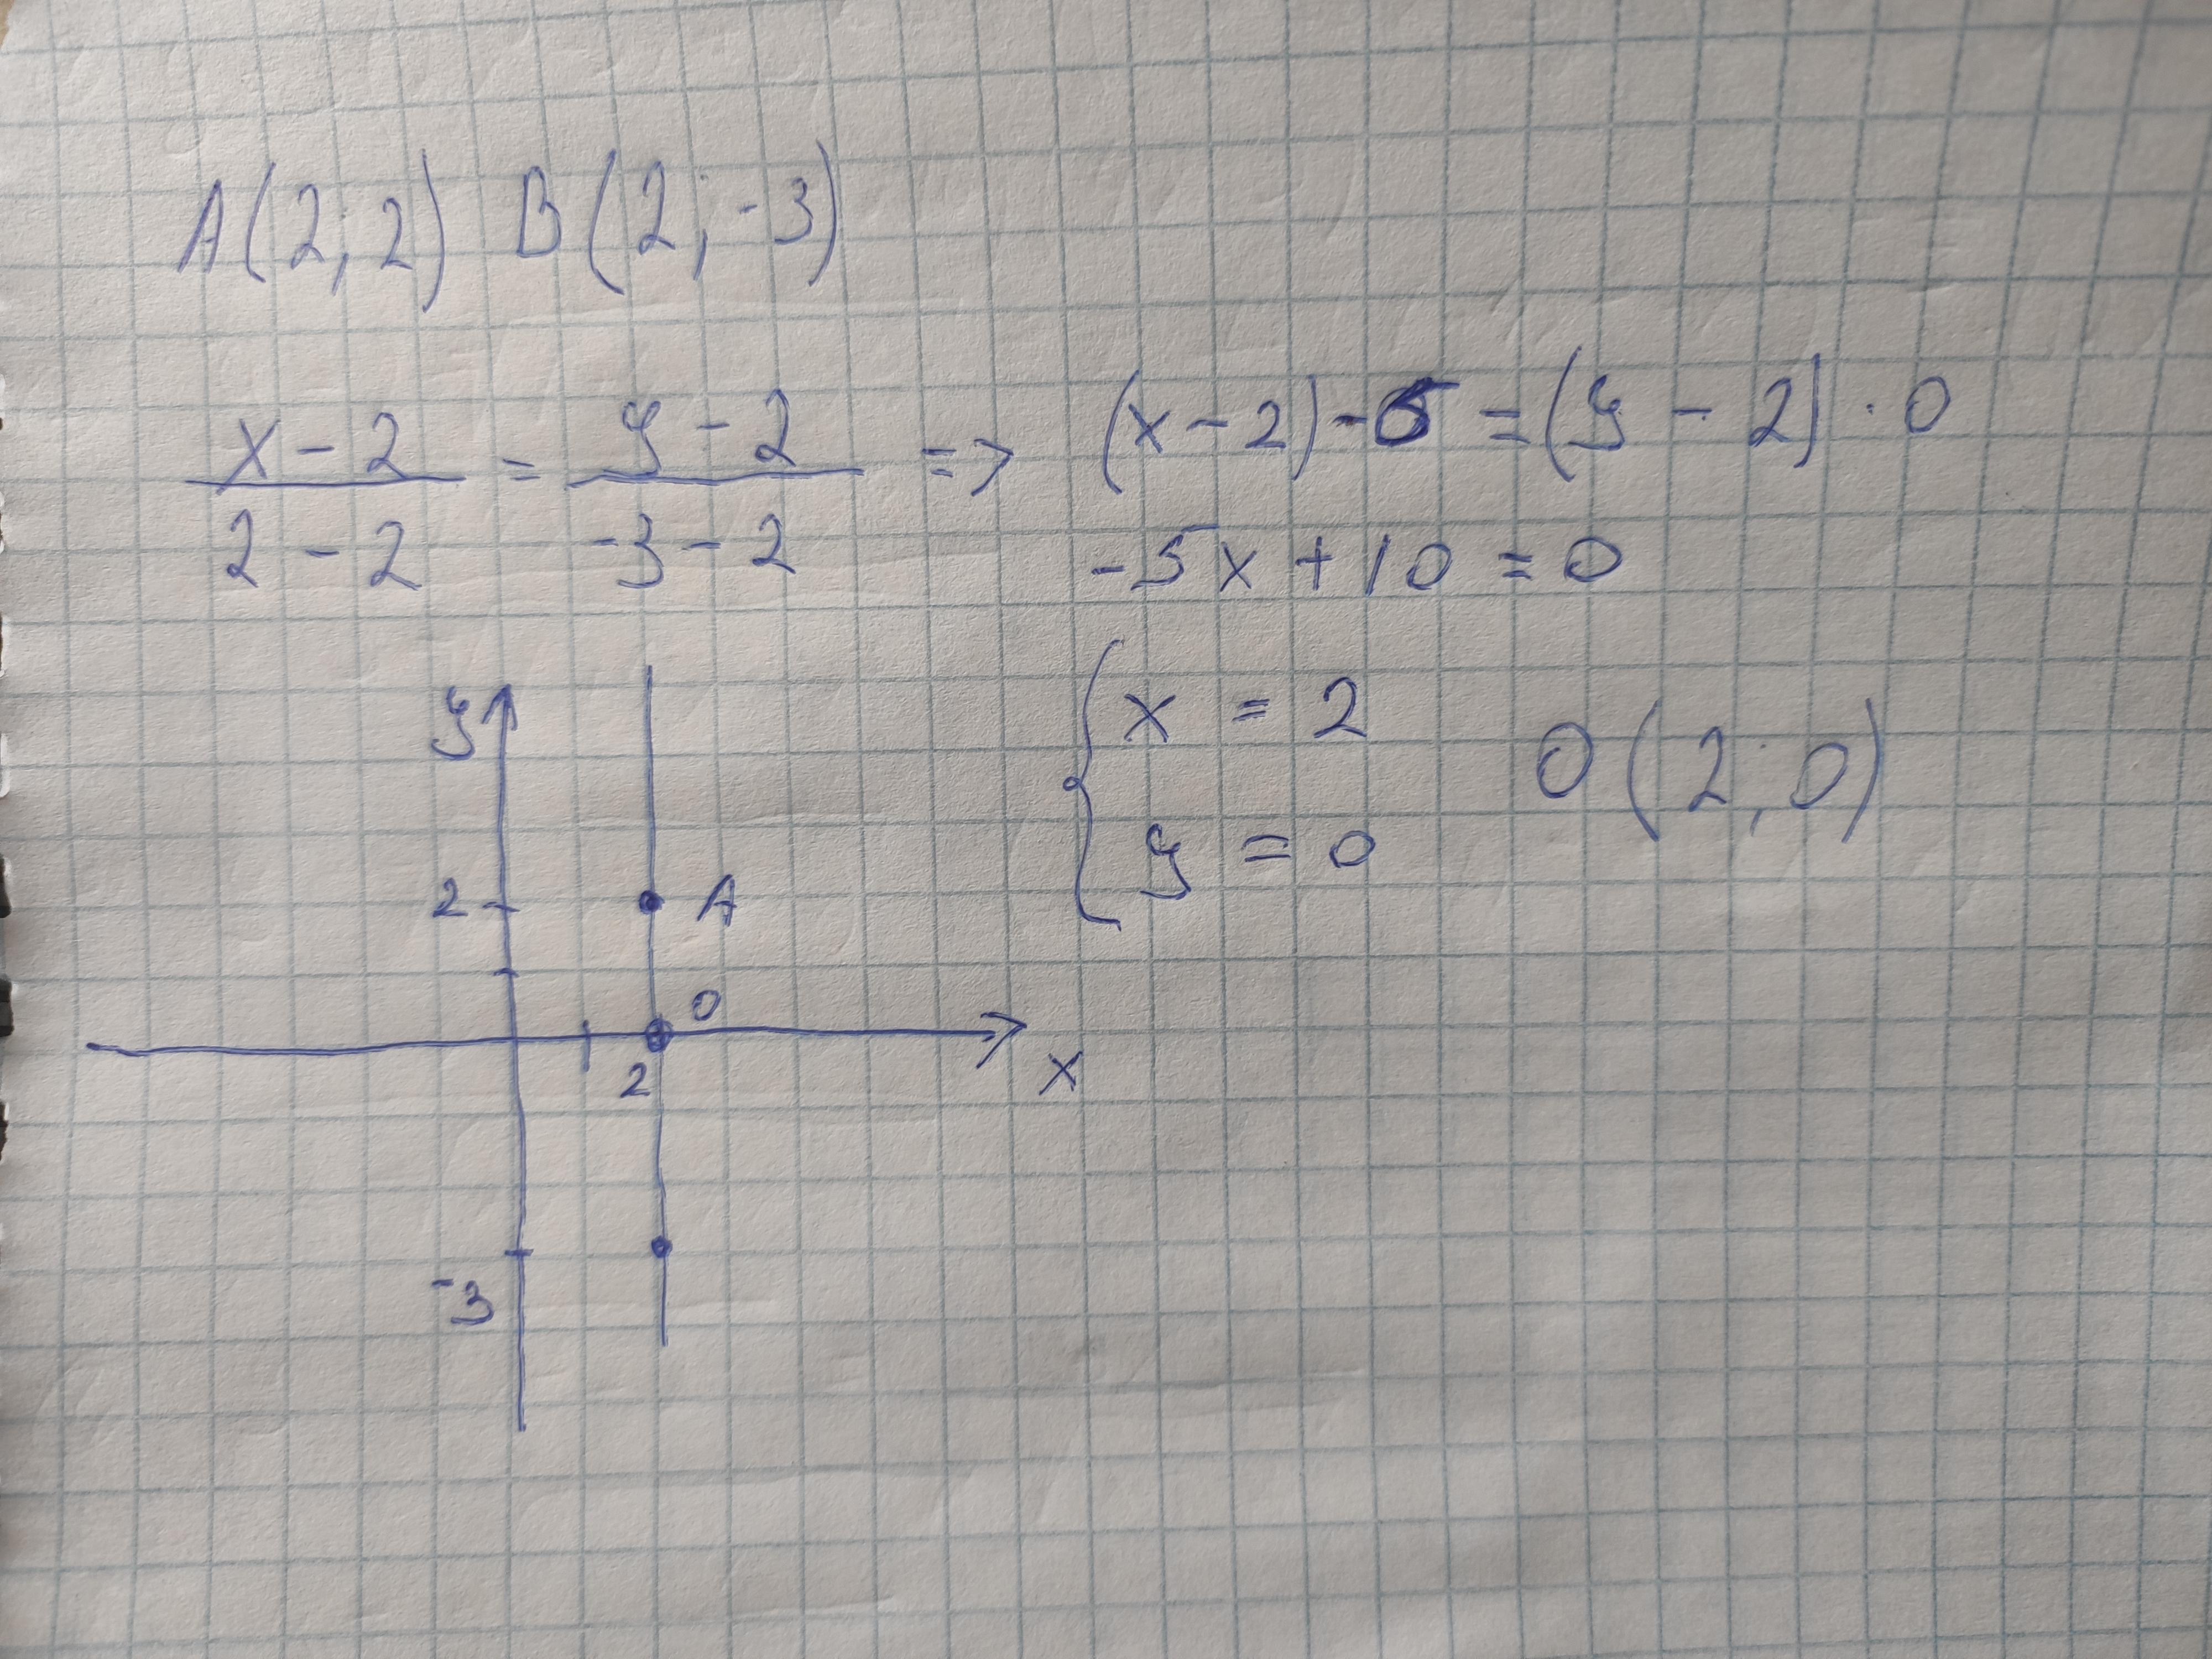 A(2;2) B(2;-3)
x-2 / 2-2 = y-2 / -3-2 => (x-2)-5 = (y-2)·0
-5x+10=0
{ x = 2
y = 0
O(2;0)
y
2
A
O
1
2
x
-3